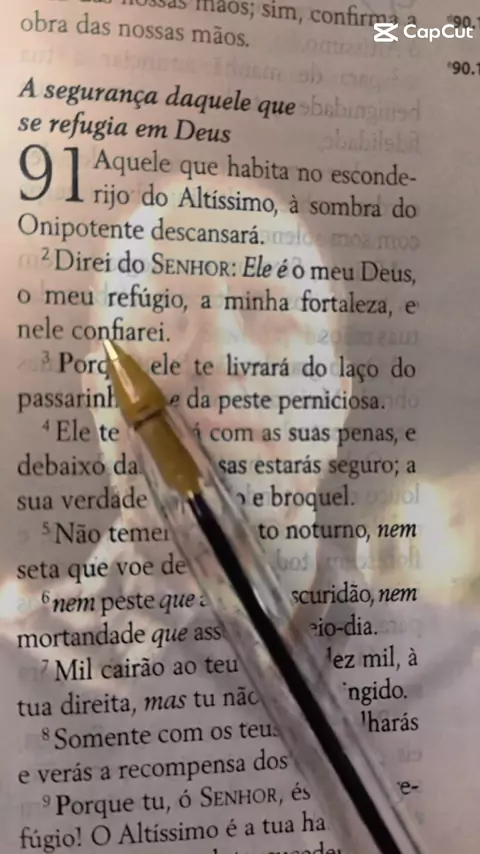 nossas mãos; sim, confirma a
obra das nossas mãos.
CapCut
A segurança daquele que
se refugia em Deus
91 Aquele que habita no esconde-
rijo do Altíssimo, à sombra do
Onipotente descansará.
2 Direi do SENHOR: Ele é o meu Deus,
o meu refúgio, a minha fortaleza, e
nele confiarei.
3 ele te livrará do laço do
e da peste perniciosa.
4 Ele te com as suas penas, e
debaixo estarás seguro; a
sua verdade e broquel.
5 Não noturno, nem
seta que voe de
6 nem peste que nem
mortandade que
7 Mil cairão ao teu mil, à
tua direita, mas tu
8 Somente com os
e verás a recompensa dos
9 Porque tu, ó SENHOR, és
fúgio! O Altíssimo é a tua